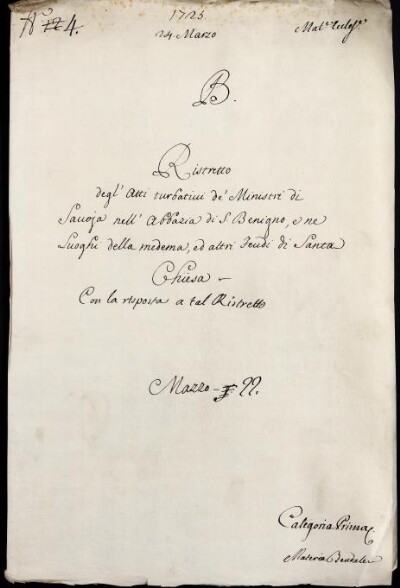 1725
N.º 4.
24 Marzo
B.
Ristretto
degl' Atti turbativi de' Ministri di
Savoja nell' Abbazia di S. Benigno, e ne
Luoghi della medema, ed altri Feudi di Santa
Chiesa –
Con la risposta a tal Ristretto
Mazzo – 22.
Categoria Prima
Materia